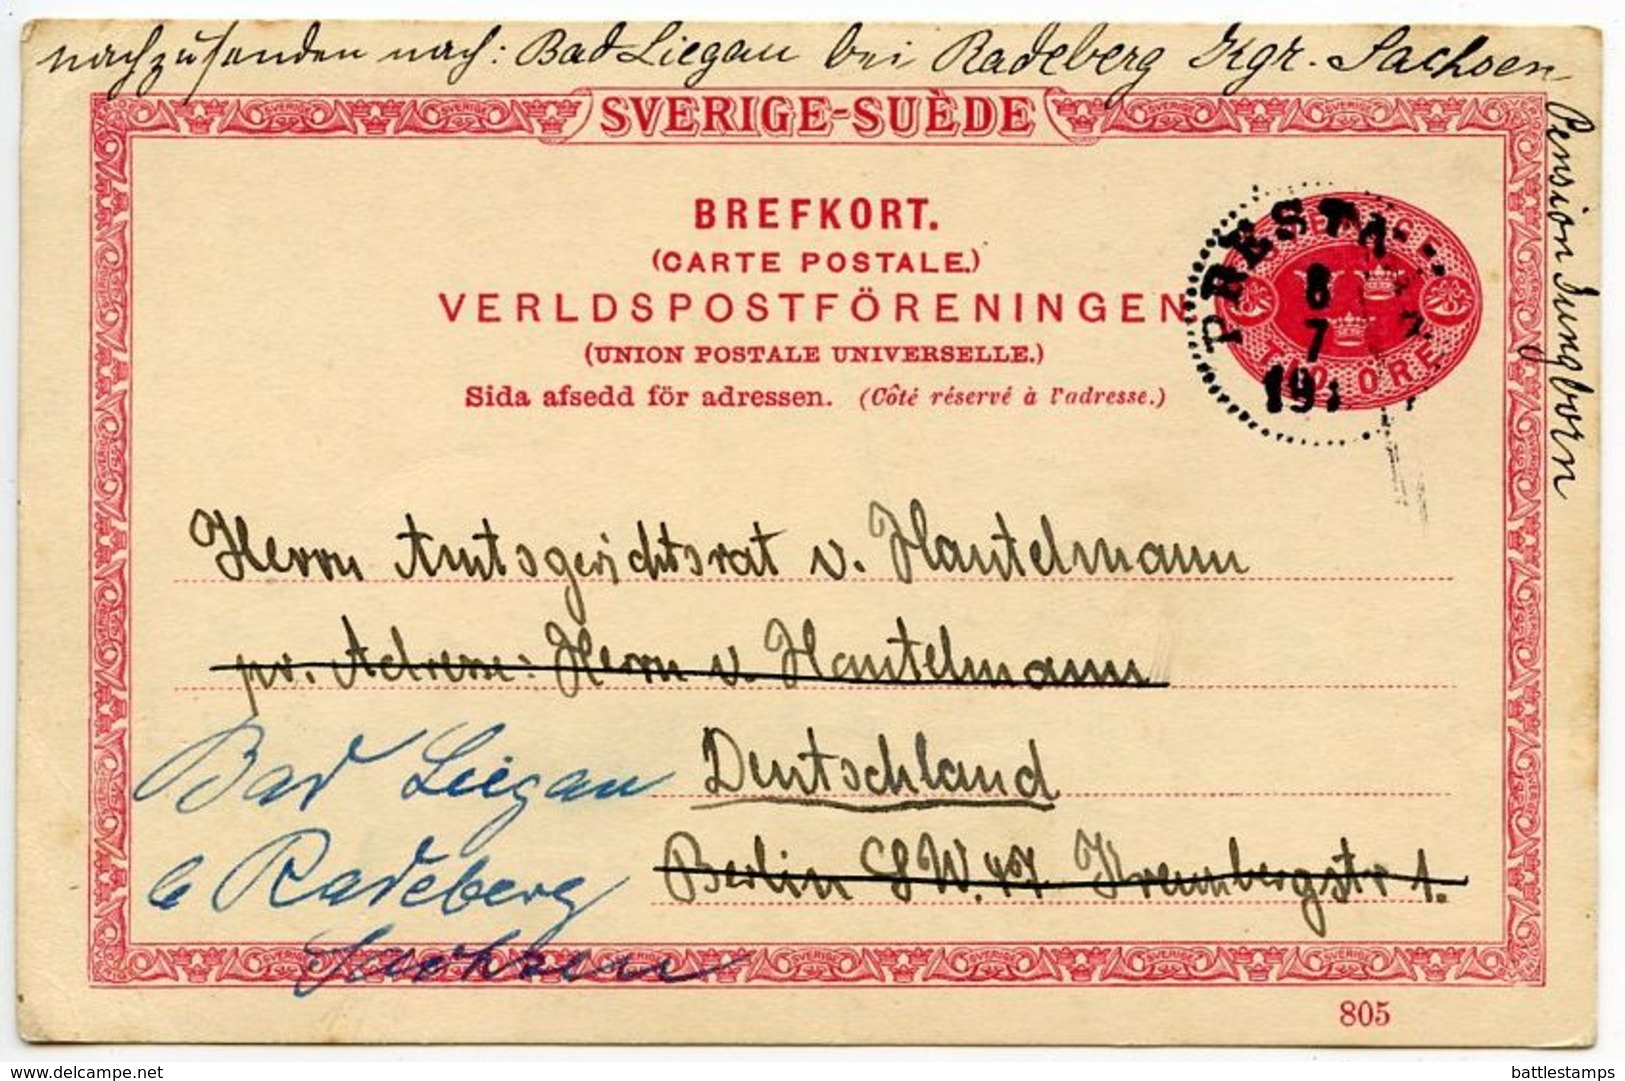 nachzusenden nach: Bad Liegau bei Radeberg Kgr. Sachsen
Pension Jungborn
SVERIGE-SUÈDE
BREFKORT.
(CARTE POSTALE.)
VERLDSPOSTFÖRENINGEN
(UNION POSTALE UNIVERSELLE.)
Sida afsedd för adressen. (Côté réservé à l'adresse.)
TIO ÖRE
8
7
191
Herrn Amtsgerichtsrat v. Hantelmann
pr. Adresse: Herrn v. Hantelmann
Deutschland
Berlin SW. 47 Kreuzbergstr 1.
Bad Liegau
b Radeberg
Sachsen
805
delcampe.net
battlestamps